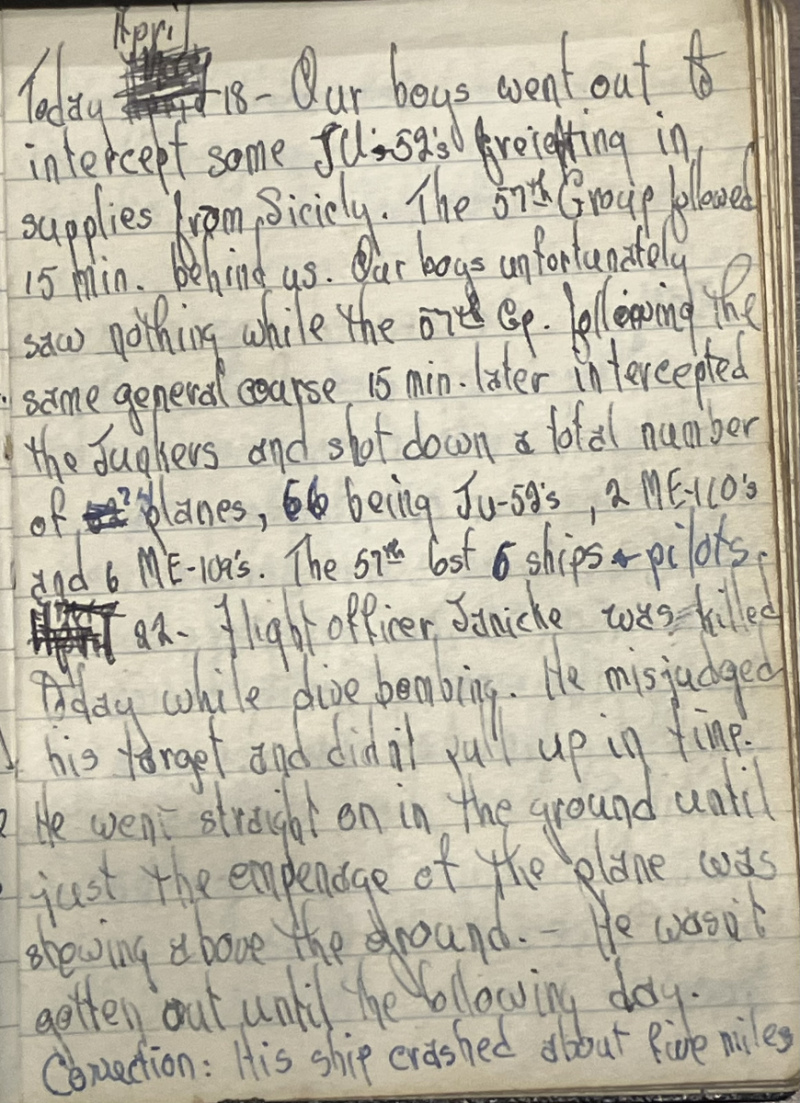 April
Today 18 - Our boys went out to
intercept some JU-52's freighting in
supplies from Sicicly. The 57th Group followed
15 min. behind us. Our boys unfortunately
saw nothing while the 57th Gp. following the
same general course 15 min. later intercepted
the Junkers and shot down a total number
of 74 planes, 66 being Ju-52's, 2 ME-110's
and 6 ME-109's. The 57th lost 6 ships + pilots.
22 - Flight officer Janicke was killed
Today while dive bombing. He misjudged
his target and didn't pull up in time.
He went straight on in the ground until
just the empenage of the plane was
showing above the ground. - He wasn't
gotten out until the following day.
Correction: His ship crashed about five miles